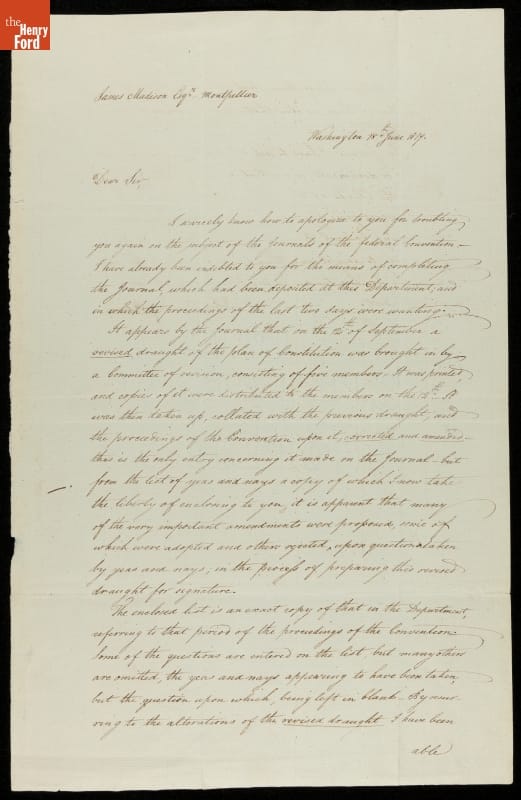 the
Henry
Ford
James Madison Esqr. Montpellier
Washington 18th June 1819.
Dear Sir,
I scarcely know how to apologize to you for troubling
you again on the subject of the Journals of the federal Convention.—
I have already been indebted to you for the means of completing
the Journal, which had been deposited at this Department, and
in which the proceedings of the last two days were wanting.
It appears by the Journal that on the 12th of September a
revised draught of the plan of Constitution was brought in by
a Committee of revision, consisting of five members— It was printed,
and copies of it were distributed to the members on the 13th. It
was then taken up, collated with the previous draught, and
the proceedings of the Convention upon it, corrected and amended—
this is the only entry concerning it made on the Journal— but
from the list of yeas and nays a copy of which I now take
the liberty of enclosing to you, it is apparent that many
of the very important amendments were proposed, some of
which were adopted and others rejected, upon questions taken
by yeas and nays, in the process of preparing this revised
draught for signature.
The enclosed list is an exact copy of that in the Department,
referring to that period of the proceedings of the Convention
Some of the questions are entered on the list, but many others
are omitted, the yeas and nays appearing to have been taken,
but the question upon which, being left in blank— By recur
ring to the alterations of the revised draught I have been
able